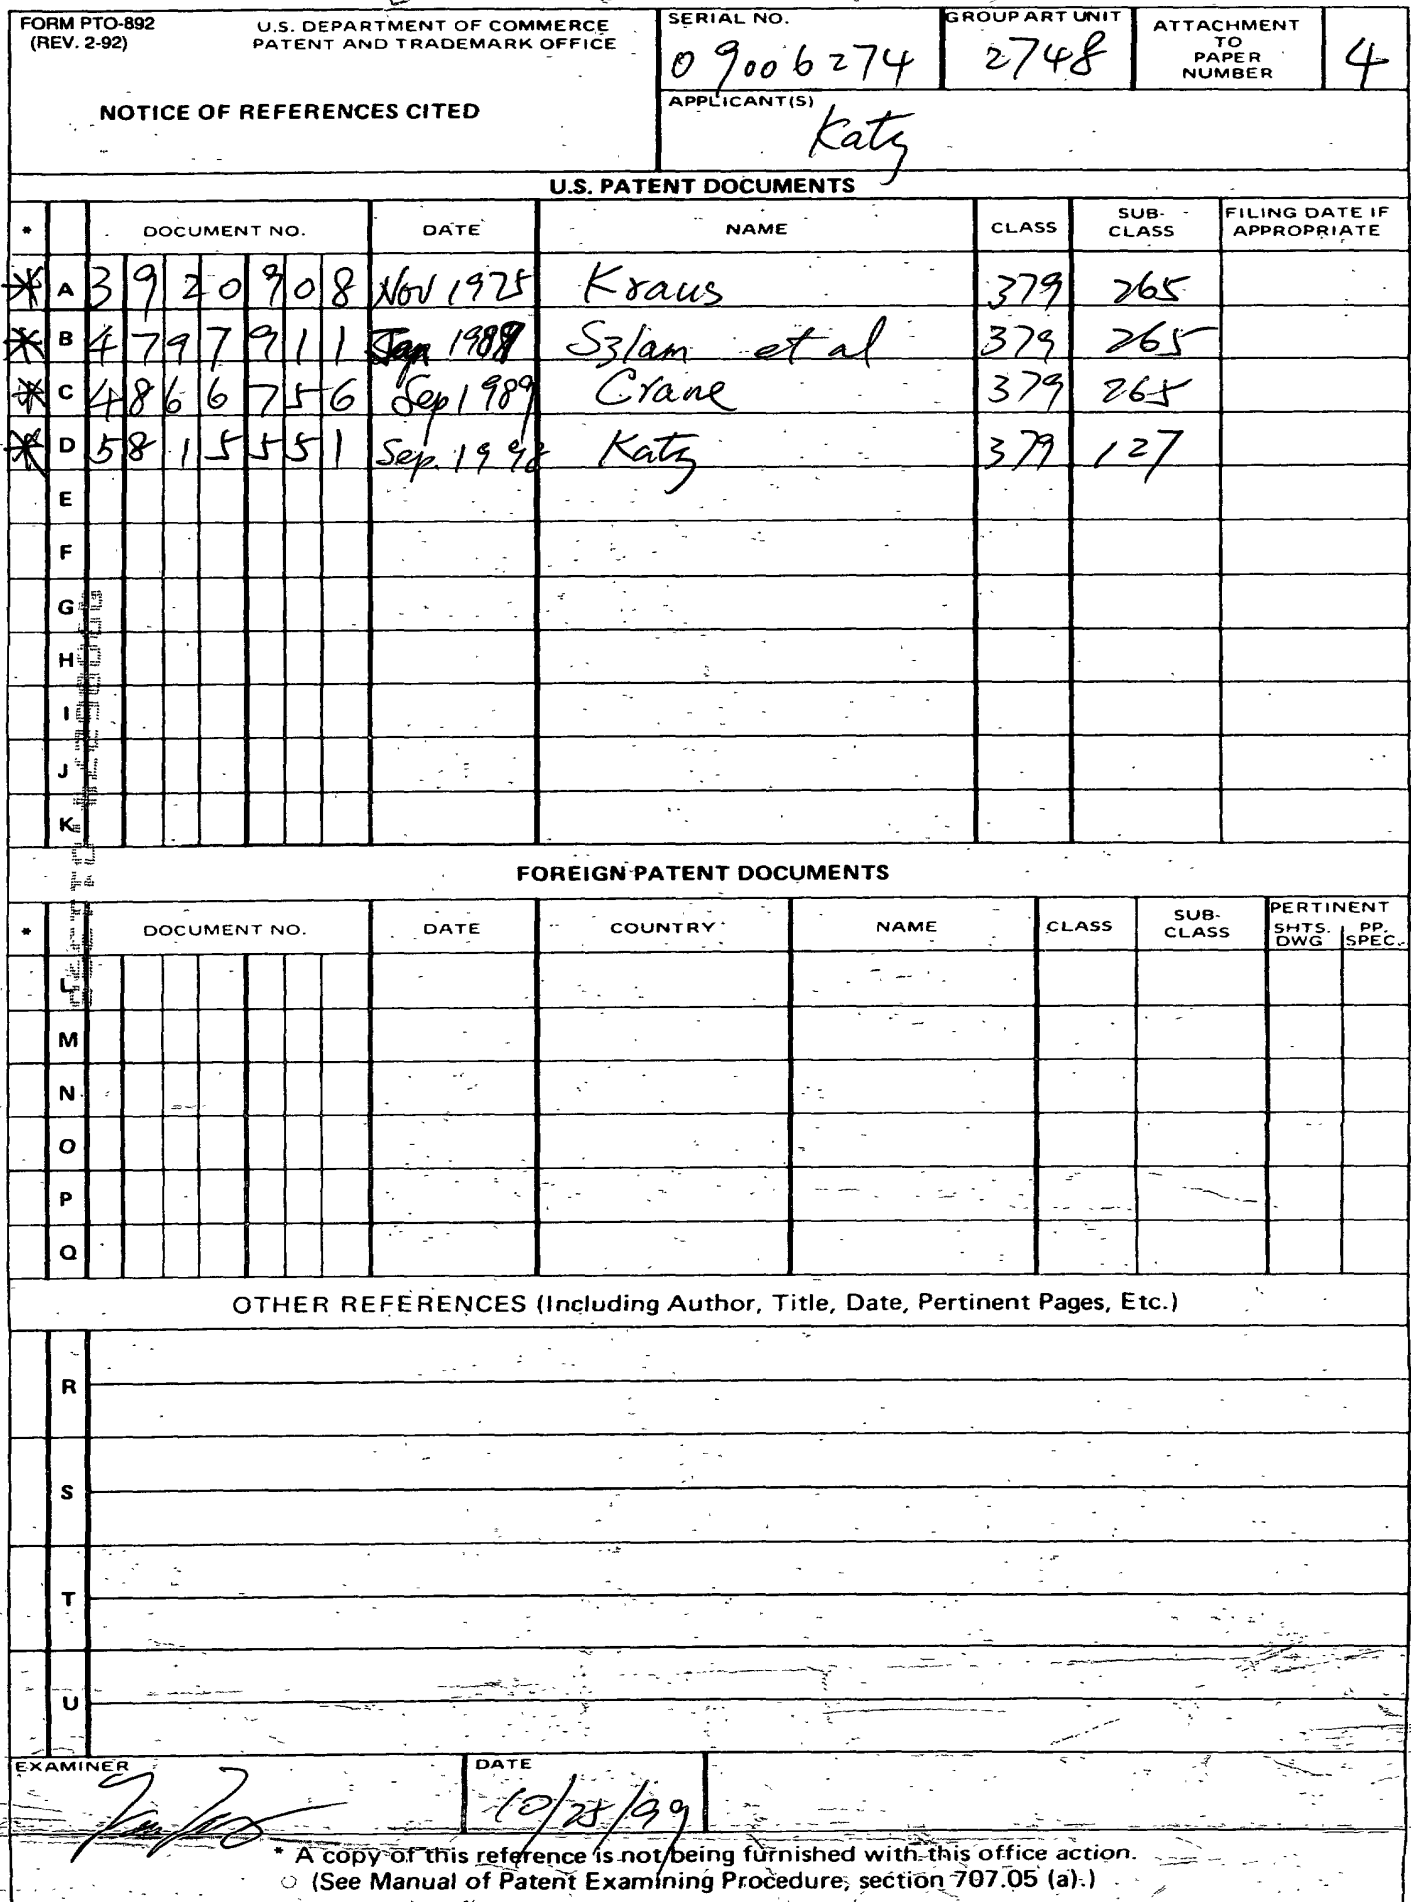 FORM PTO-892
(REV. 2-92)
U.S. DEPARTMENT OF COMMERCE
PATENT AND TRADEMARK OFFICE
NOTICE OF REFERENCES CITED
SERIAL NO.
09006274
GROUP ART UNIT
2748
ATTACHMENT
TO
PAPER
NUMBER
4
APPLICANT(S)
Katz
U.S. PATENT DOCUMENTS
* DOCUMENT NO. DATE NAME CLASS SUB-CLASS FILING DATE IF APPROPRIATE
* A 3920908 Nov 1975 Kraus 379 265
* B 4797911 Jan 1989 Szlam et al 379 265
* C 4866756 Sep 1989 Crane 379 265
* D 5815551 Sep. 1998 Katz 379 127
E
F
G
H
I
J
K
FOREIGN PATENT DOCUMENTS
* DOCUMENT NO. DATE COUNTRY NAME CLASS SUB-CLASS PERTINENT SHTS. DWG PP. SPEC.
L
M
N
O
P
Q
OTHER REFERENCES (Including Author, Title, Date, Pertinent Pages, Etc.)
R
S
T
U
EXAMINER
DATE
10/25/99
* A copy of this reference is not being furnished with this office action.
(See Manual of Patent Examining Procedure, section 707.05 (a).)